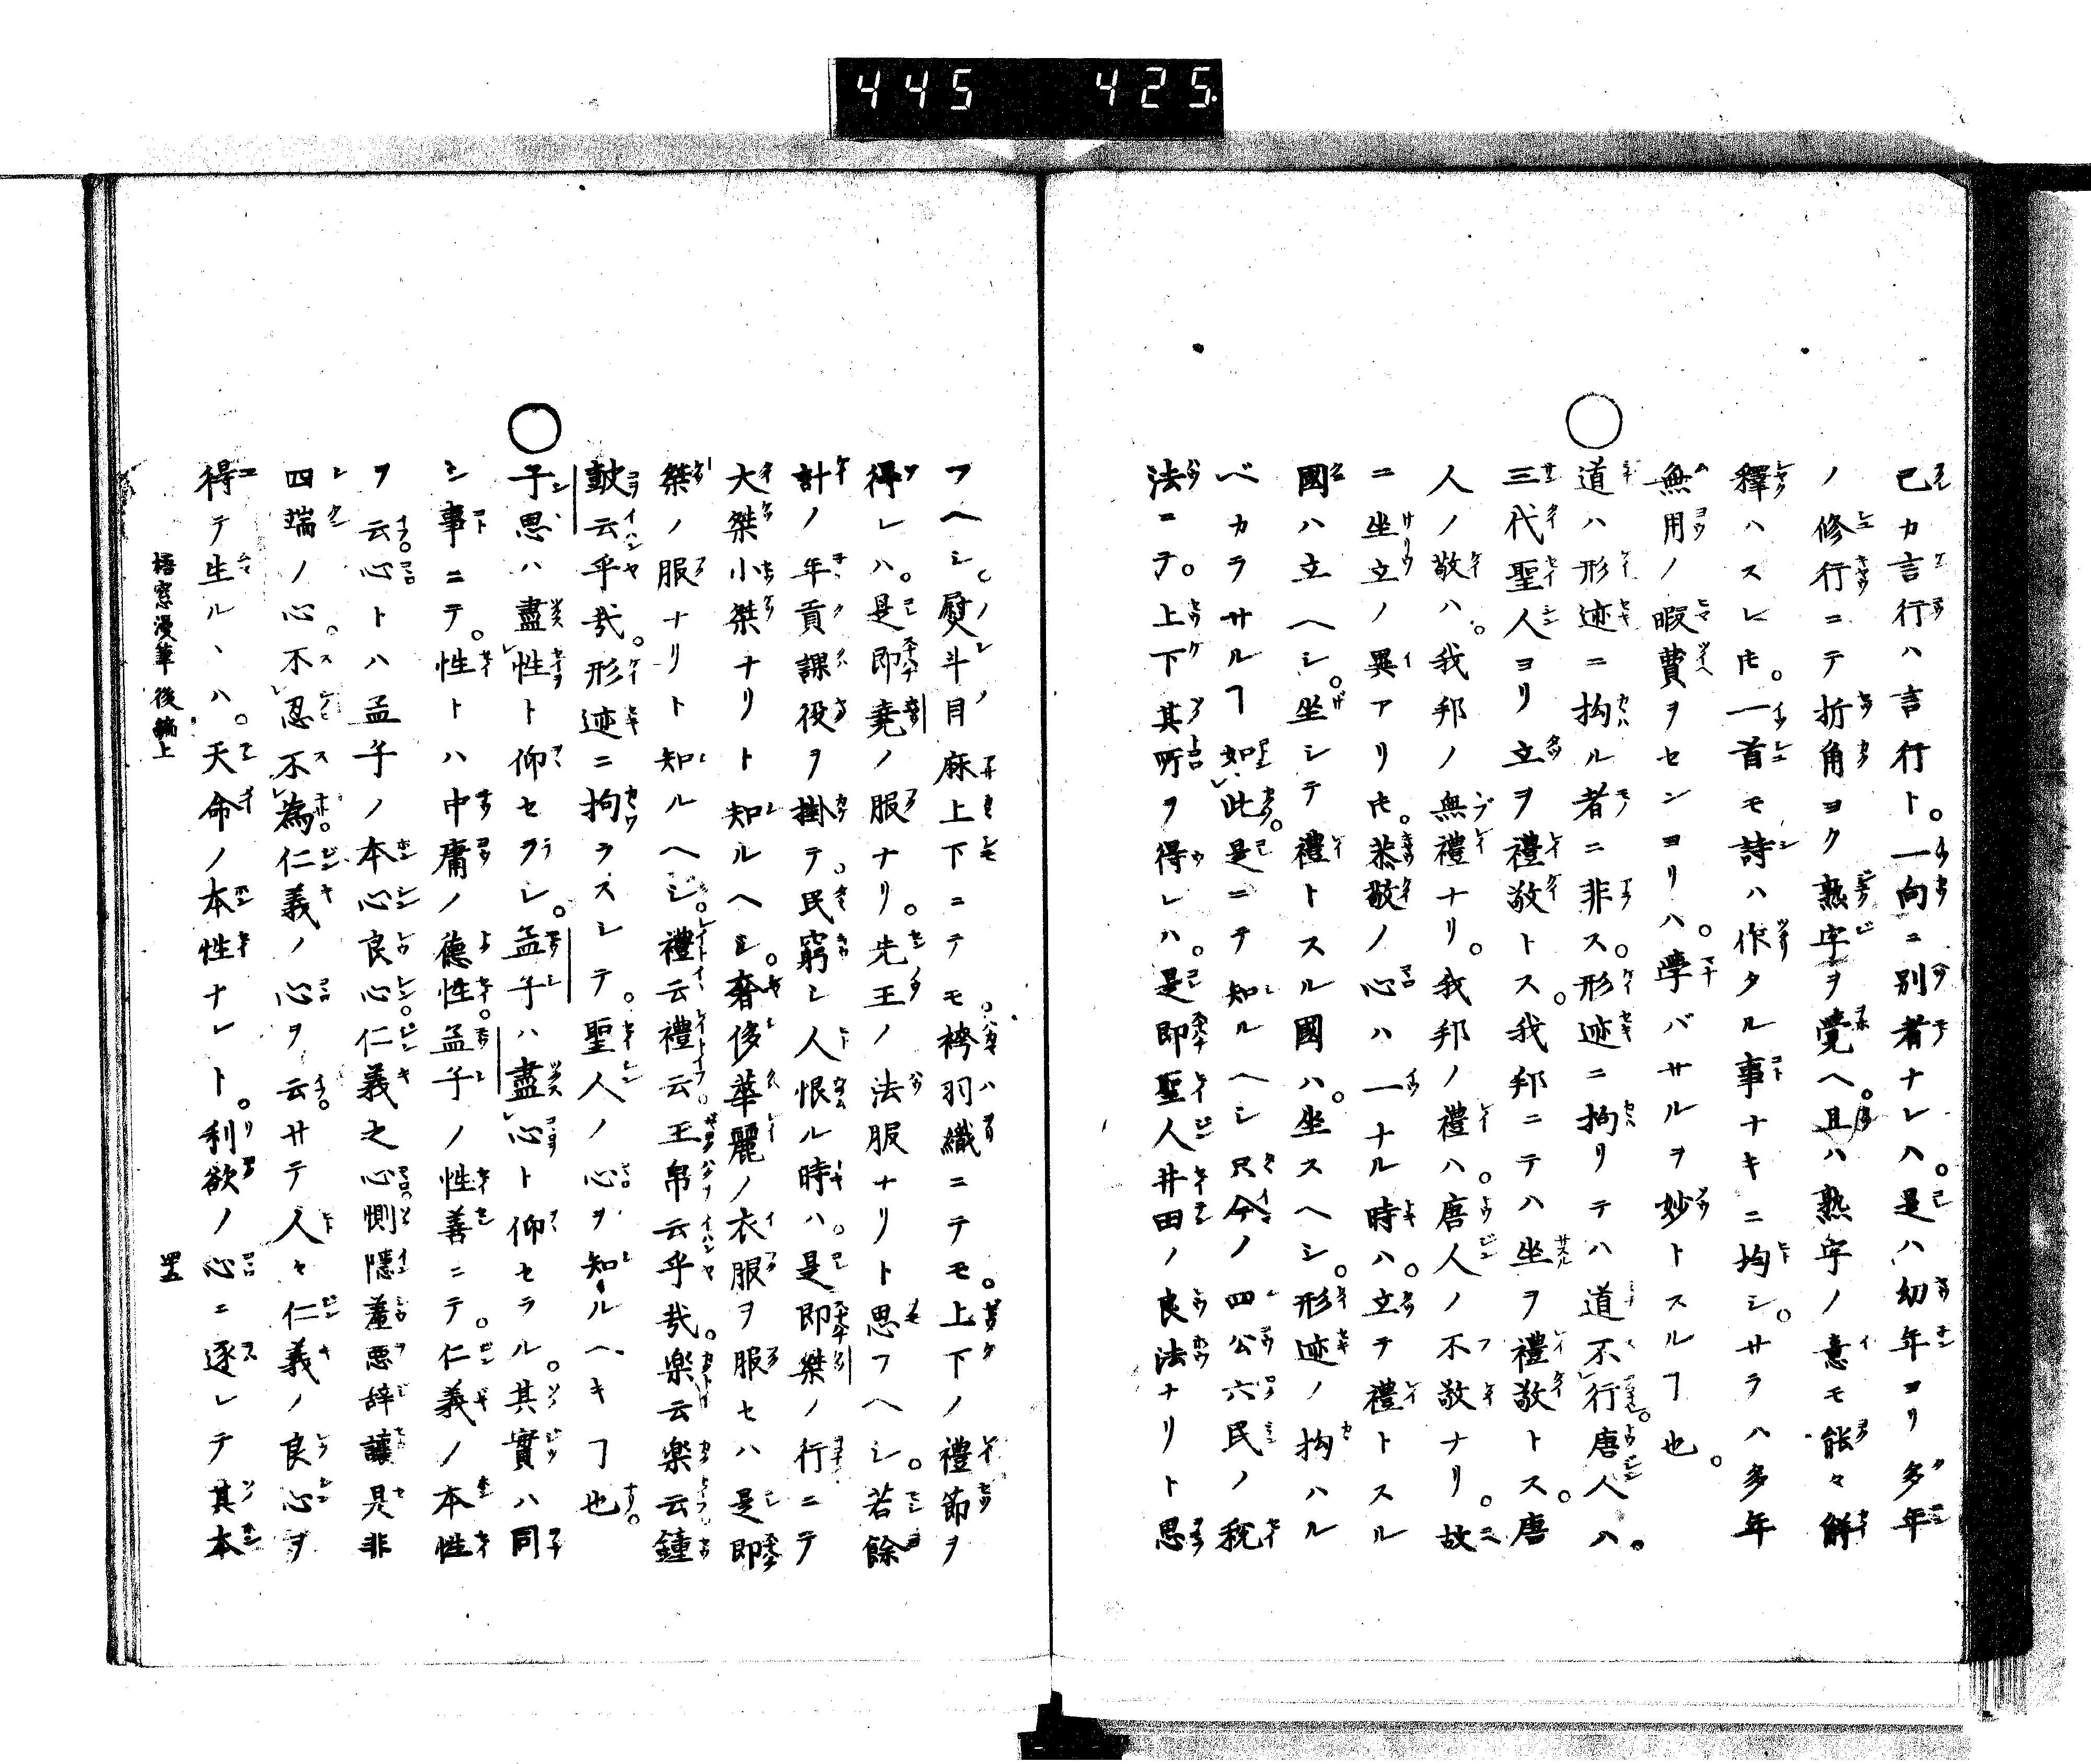 445 425
已カ言行ハ言行ト。一向ニ別者ナレハ。是ハ幼年ヨリ多年
ノ修行ニテ折角ヨク熟字ヲ覺ヘ。且ハ熟字ノ意モ能々解
釋ハスレ𪜈。一首モ詩ハ作タル事ナキニ均シ。サラハ多年
無用ノ暇費ヲセンヨリハ。學バサルヲ妙トスルヿ也。
○道ハ形迹ニ拘ル者ニ非ス。形迹ニ拘リテハ道不レ行。唐人ハ。
三代聖人ヨリ立ヲ禮敬トス。我邦ニテハ坐ヲ禮敬トス。唐
人ノ敬ハ。我邦ノ無禮ナリ。我邦ノ禮ハ。唐人ノ不敬ナリ。故
ニ坐立ノ異アリ𪜈。恭敬ノ心ハ一ナル時ハ。立テ禮トスル
國ハ立ヘシ。坐シテ禮トスル國ハ。坐スヘシ。形迹ノ拘ハル
ベカラサルヿ如レ此。是ニテ知ルヘシ只今ノ四公六民ノ税
法ニテ。上下其所ヲ得レハ。是即聖人井田ノ良法ナリト思
フヘシ。熨斗目麻上下ニテモ。袴羽織ニテモ。上下ノ禮節ヲ
得レハ。是即堯ノ服ナリ。先王ノ法服ナリト思フヘシ。若餘
計ノ年貢課役ヲ掛テ。民窮シ人恨ル時ハ。是即桀ノ行ニテ
大桀小桀ナリト知ルヘシ。奢侈華麗ノ衣服ヲ服セハ是即
桀ノ服ナリト知ルヘシ。禮云禮云。玉帛云乎哉。樂云樂云鐘
鼓云乎哉。形迹ニ拘ラスシテ。聖人ノ心ヲ知ルヘキヿ也。
○子思ハ盡レ性ト仰セラレ。孟子ハ盡レ心ト仰セラル。其實ハ同
シ事ニテ。性トハ中庸ノ德性。孟子ノ性善ニテ。仁義ノ本性
ヲ云。心トハ孟子ノ本心良心。仁義之心。惻隱羞惡辞讓是非
四端ノ心。不レ忍不レ為。仁義ノ心ヲ云。サテ人々仁義ノ良心ヲ
得テ生ルヽハ。天命ノ本性ナレト。利欲ノ心ニ逐レテ其本
梧窓漫筆後編上 罒五